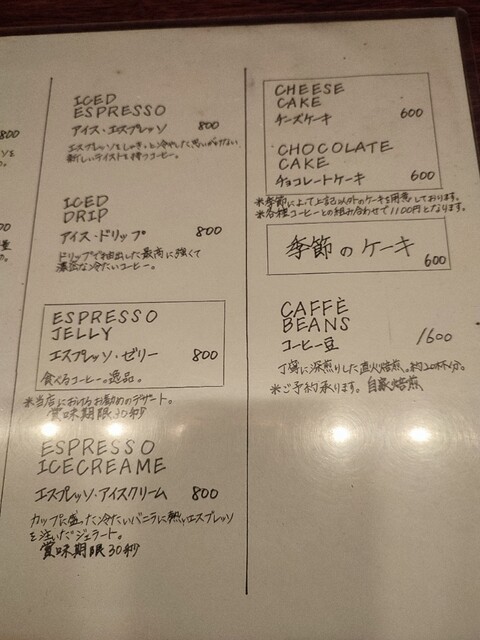 800
ICED
ESPRESSO
アイス・エスプレッソ 800
新しいテイストを持つコーヒー。
ICED
DRIP
アイス・ドリップ 800
ドリップで抽出した最高に強くて
濃密な冷たいコーヒー。
ESPRESSO
JELLY
エスプレッソ・ゼリー 800
食べるコーヒー。逸品。
※当店におけるお勧めのデザート。
賞味期限30秒
ESPRESSO
ICECREAME
エスプレッソ・アイスクリーム 800
カップに盛った冷たいバニラに熱いエスプレッソ
を注いだジェラート。
賞味期限30秒
CHEESE
CAKE
チーズケーキ 600
CHOCOLATE
CAKE
チョコレートケーキ 600
※季節によって上記以外のケーキも用意しております。
※各種コーヒーとの組み合わせで1100円となります。
季節のケーキ
600
CAFFÈ
BEANS
コーヒー豆 1600
丁寧に深煎りした直火焙煎。約20杯分。
※ご予約承ります。自家焙煎